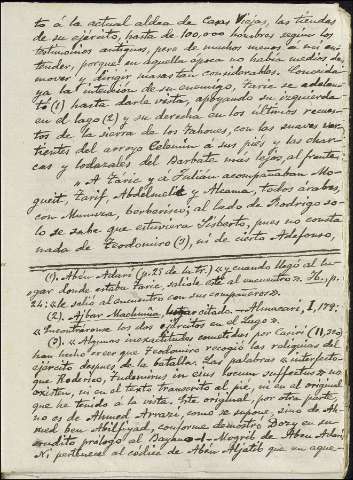 tó á la actual aldea de Casas Viejas, las tiendas
de su ejército, hasta de 100,000 hombres según los
testimonios antiguos, pero de muchos menos á mi en-
tender, porque en aquella época no había medios de
mover y dirigir masas tan considerables. Conocida
ya la intención de su enemigo, Taric se adelan-
tó (1) hasta darle vista, apoyando su izquierda
en el lago (2) y su derecha en los últimos recues-
tos de la sierra de los Tahones, con las suaves ver-
tientes del arroyo Celemín á sus piés y las char-
cas y lodazales del Barbate mas lejos, al frente.
"A Táric y á Julian acompañaban Mo-
gueit, Tarif, Abdelmelic y Alcama, todos árabes,
con Munuza, berberisco; al lado de Rodrigo so-
lo se sabe que estuviera Sisberto, pues no consta
nada de Teodomiro (3), ni de cierto Adefonso,
(1). Abén Adarí (p. 25 de la tr.) «y cuando llegó al lu-
gar donde estaba Taric, salióle éste al encuentro». Ib., p.
24: «le salió al encuentro con sus compañeros».
(2). Ajbar Machmúa, citada. - Almacari, I, 178:
«Encontráronse los dos ejércitos en el Lago».
(3). Algunas inexactitudes cometidas por Casiri (II, 320)
han hecho creer que Teodomiro recogió las reliquias del
ejército despues de la batalla. Las palabras «interfecto-
que Roderico, Tudemirus in eius locum suffectus» no
existen, ni en el texto transcrito al pié, ni en el original
que he tenido á la vista. Este original, por otra parte,
no es de Ahmed Arrazi, como se supone, sino de Ah-
med ben Abilfiyad, conforme demostró Dozy en su
erudito prólogo al Bayano-l-Mogrib de Aben Adarí.
Ni pertenece al códice de Abén Aljatib que en aque-